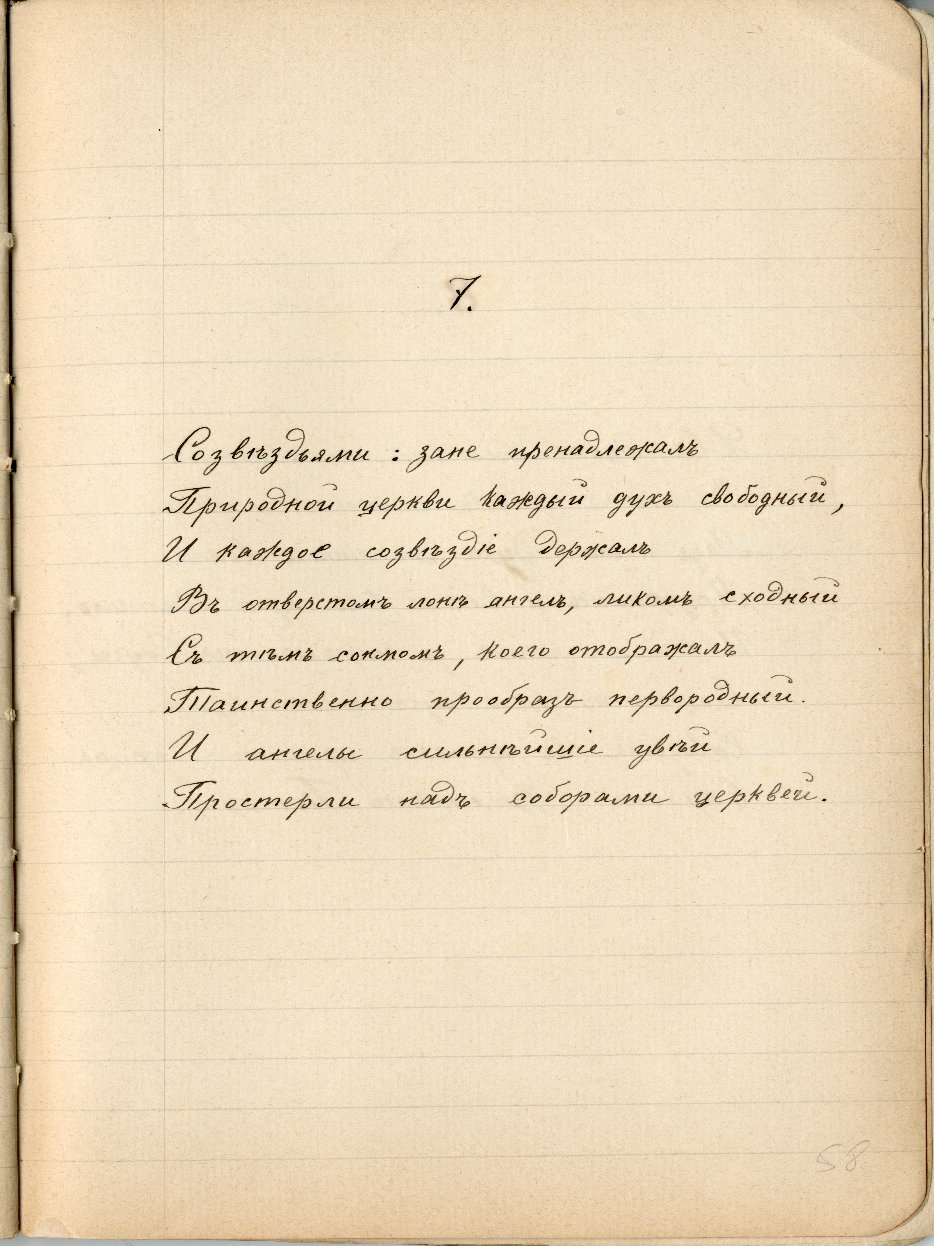 7.
Созвѣздьями: зане пренадлежалъ
Природной церкви каждый духъ свободный,
И каждое созвѣздіе держалъ
Въ отверстомъ лонѣ ангелъ, ликомъ сходный
Съ тѣмъ сонмомъ, коего отображалъ
Таинственно прообразъ первородный.
И ангелы сильнѣйшіе увѣй
Простерли надъ соборами церквей.
58